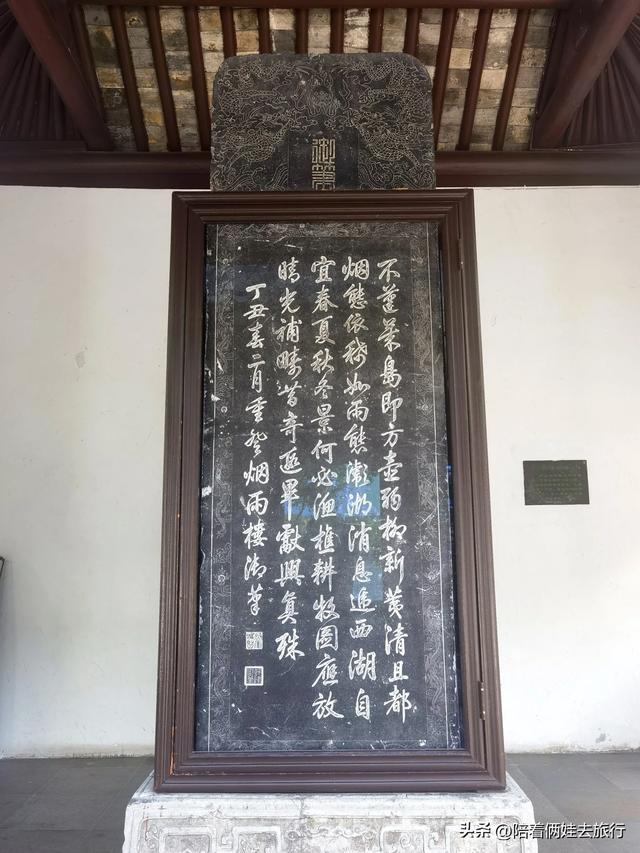 御筆
不蓬萊島即方壺弱柳新荑清且都
烟態依稀如雨態滮湖消息遞西湖自
宜春夏秋冬景何必漁樵耕牧圖應放
晴光補疇昔奇遐畢獻興真殊
丁丑春二月重登烟雨樓御筆
头条 @陪着俩娃去旅行